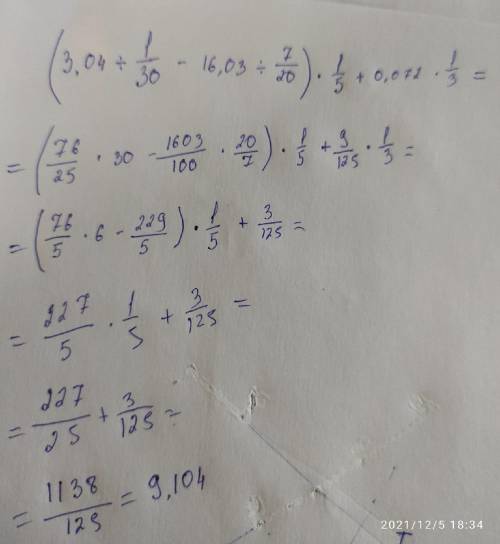 (3,04 ÷ 1/30 - 16,03 ÷ 7/20) · 1/5 + 0,072 · 1/3 =
= (76/25 · 30 - 1603/100 · 20/7) · 1/5 + 9/125 · 1/3 =
= (76/5 · 6 - 229/5) · 1/5 + 3/125 =
= 227/5 · 1/5 + 3/125 =
= 227/25 + 3/125 =
= 1138/125 = 9,104
2021/12/5 18:34